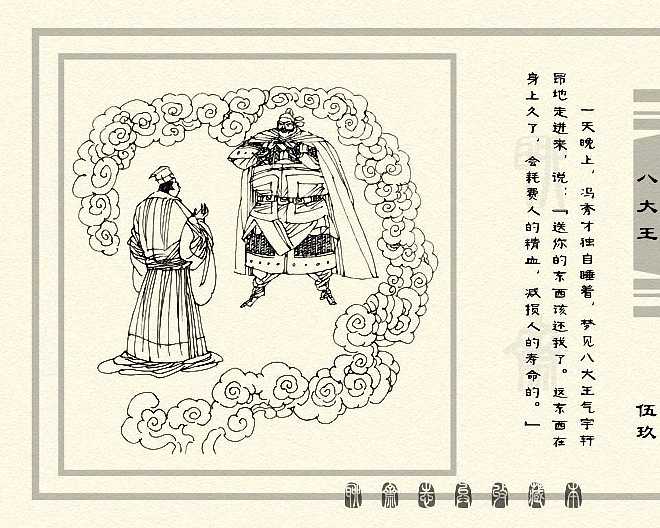 一天晚上，冯秀才独自睡着，梦见八大王气宇轩
昂地走进来，说：“送你的东西该还我了。这东西在
身上久了，会耗费人的精血，减损人的寿命的。”
八大王
伍玖
聊斋志异收藏本